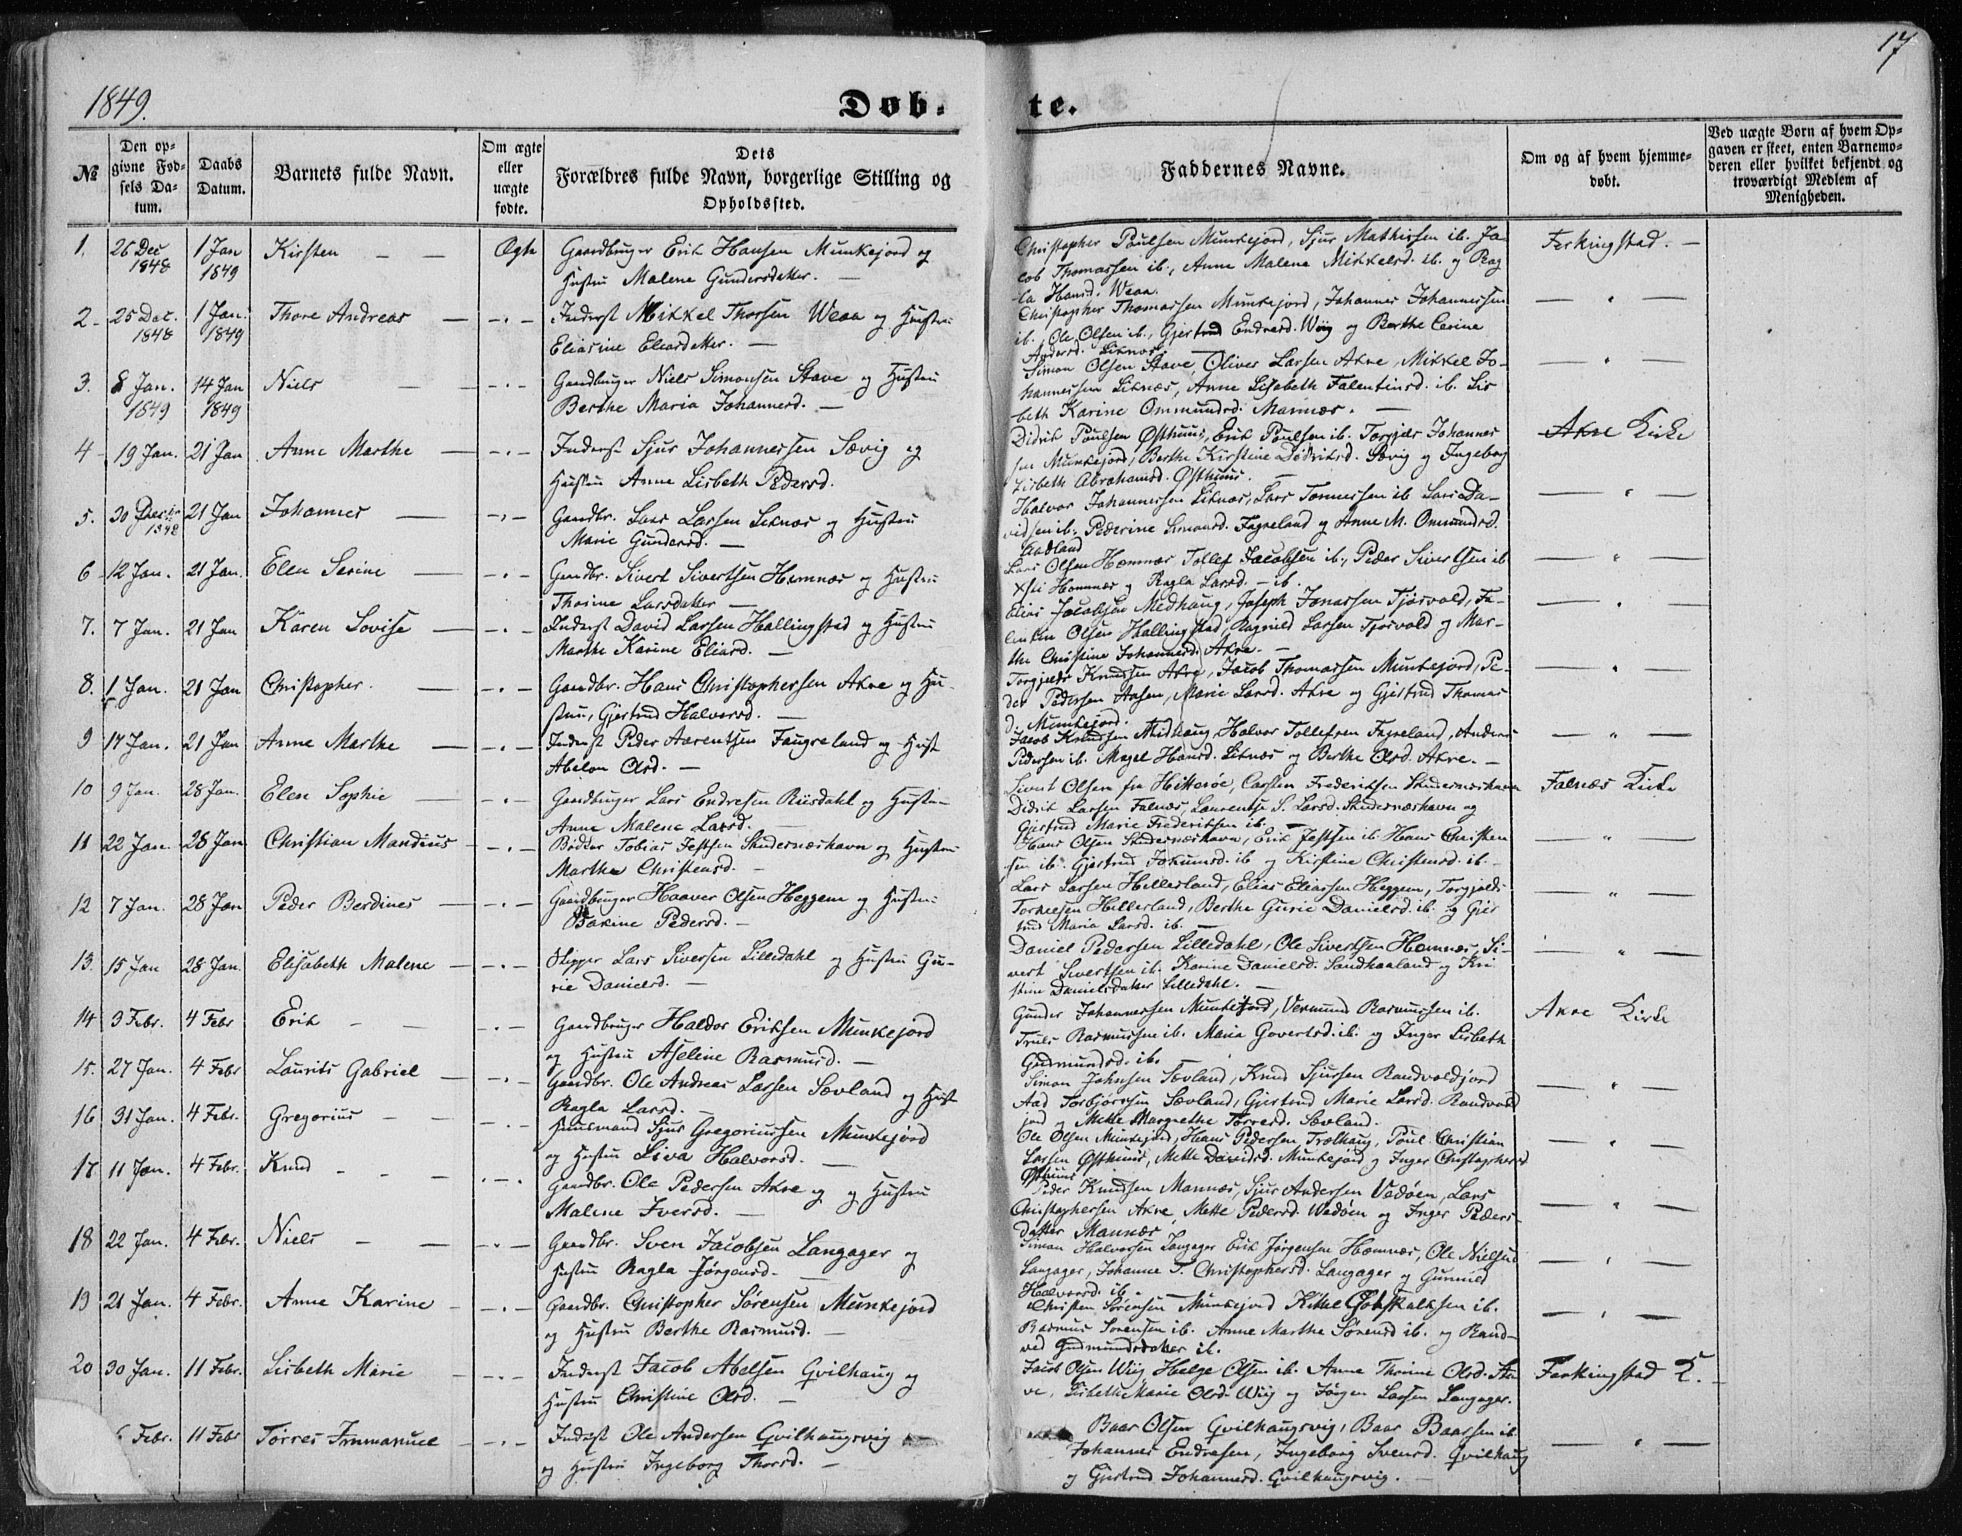 17
1849.
Døb-
te.
№
Den op-
givne Fød-
sels Da-
tum.
Daabs
Datum.
Barnets fulde Navn.
Om ægte
eller
uægte
fødte.
Dets
Forældres fulde Navn, borgerlige Stilling og
Opholdssted.
Faddernes Navne.
Om og af hvem hjemme-
døbt.
Ved uægte Børn af hvem Op-
gaven er skeet, enten Barnemo-
deren eller hvilket bekjendt og
troværdigt Medlem af
Menigheden.
1. 26 Dec 1848 1 Jan 1849 Kirsten — — Ægte Gaardbruger Erik Hansen Munkejord og
Hustru Malene Gundersdatter. —
Christopher Poulsen Munkejord, Sjur Mathissen ib. Ja-
cob Thomassen ib., Anne Malene Mikkelsd. ib. og Rag
la Hansd. Weaa.
Ferkingstad. —
2 - 25 Dec. 1848 1 Jan. 1849 Thore Andreas — — " — Inderst Mikkel Thorsen Weaa og Hustru
Eliasine Eliasdatter. —
Christopher Thomassen Munkejord, Johannes Johannessen
ib. Ole Olsen ib., Gjertrud Endresd. Wiig og Berthe Serine
Andersd. Liknæs.
— " —
3. 8 Jan. 1849 14 Jan 1849 Niels — — " — Gaardbruger Niels Simonsen Stave og Hustru
Berthe Maria Johannesd. —
Simon Olsen Stave, Oliver Larsen Akre, Mikkel Jo-
hannessen Liknæs, Anne Lisabeth Falentinsd. ib. Lis
beth Karine Ommundsd. Mannæs. —
— " —
4 - 19 Jan. 21 Jan Anne Marthe — — " — Inderst Sjur Johannessen Sævig og
Hustru Anne Lisbeth Pedersd.
Didrik Poulsen Østhuus, Erik Poulsen ib. Torgjer Johannes
sen Munkejord, Berthe Kirstine Didriksd. Sævig og Ingeborg
Lisbeth Abrahamsd. Østhuus. —
Akre Kirke
5. 30 Decbr 1848 21 Jan Johannes — — " — Gaardbr. Lars Larsen Liknæs og Hustru
Marie Gundersd. —
Halvor Johannessen Liknæs, Lars Tønnessen ib. Lars Da-
vidsen ib., Pederine Simonsd. Fagreland og Anne M. Ommundsd.
— " —
6 - 12 Jan. 21 Jan. Elen Serine — — " — Gaardbr. Sivert Sivertsen Hemnæs og Hustru
Thorine Larsdatter —
Lars Olsen Hemnæs, Tollef Jacobsen ib., Peder Sivertsen ib
Hemnæs og Ragla Larsd. — ib.
— " —
7. 7 Jan. 21 Jan Karen Lovise — — " — Inderst David Larsen Hallingstad og Hustru
Marthe Karine Eliasd. —
Elias Jacobsen Medhaug, Joseph Jonassen Tjøsvold, Fa-
lentin Olsen Hallingstad, Ragnild Larsen Tjøsvold og Mar-
the Christine Johannesd. Akre. —
— " —
8. 1 Jan. 21 Jan Christopher. — — " — Gaardbr. Hans Christophersen Akre og Hu-
stru, Gjertrud Halvorsd. —
Torgjelds Knudsen Akre, Jacob Thomassen Munkejord, Pe-
der Pedersen Aasen, Marie Larsd. Akre og Gjertrud Thomas
d. Munkejord.
— " —
9 17 Jan. 21 Jan Anne Marthe — — " — Inderst Peder Aarentsen Faugreland og Hust
Abelon Olsd. —
Jacob Knudsen Midhaug, Halvor Tollefsen Fagreland, Anders
Pedersen ib. Magel Hansd. Liknæs og Berthe Olsd. Akre. —
— " —
10 9 Jan. 28 Jan. Elen Sophie — — " — Gaardbruger Lars Endresen Riisdahl og Hustru
Anne Malene Larsd. —
Sivert Olsen fra Hitterøe, Carsten Frederiksen Skudesneshavn
Didrik Larsen Falnæs, Laurentse S. Larsd. Skudernæshavn og
Gjertrud Marie Frederiksen ib. —
Falnæs Kirke
11 22 Jan. 28 Jan Christian Mandius — — " — Bødker Tobias Jessen Skudernæshavn og Hustru
Marthe Christensd. —
Hans Olsen Skudernæshavn, Erik Jessen ib. Hans Christen
sen ib. Gjertrud Jokumsd. ib og Kirstine Christensd. ib. —
— " —
12 7 Jan. 28 Jan Peder Berdines — — " — Gaardbruger Haaver Olsen Heggem og Hustru
Bakine Pedersd. —
Lars Larsen Hillesland, Elias Eliassen Heggem, Torgjelds
Torkelsen Hillesland, Berthe Gurie Danielsd. ib. og Gjer
trud Maria Larsd. ib. —
— " —
13. 15 Jan 28 Jan. Elisabeth Malene — — " — Skipper Lars Siversen Lilledahl og Hustru Gu-
rie Danielsd. —
Daniel Pedersen Lilledahl, Ole Sivertsen Hemnæs, Si-
vert Sivertsen ib. Karine Danielsd. Sandhaaland og Kri
stine Danielsdatter Lilledahl. —
— " —
14 3 Febr. 4 Febr Erik — — — " — Gaardbruger Haldor Eriksen Munkejord
og Hustru Aseline Rasmusd. —
Gunder Johannessen Munkejord, Vermund Rasmussen ib.
Truls Rasmussen ib. Maria Govertsd. ib. og Inger Lisbeth
Gudmundsd. ib.
Akre Kirke
15. 27 Jan. 4 Febr Laurits Gabriel — — " — Gaardbr. Ole Andreas Larsen Sævland og Hust
Ragla Larsd. —
Simon Johnsen Sævland, Knud Sjursen Sandvoldjord
Ard Torbjørnsen Sævland, Gjertrud Marie Larsd. Randvold
jord og Mette Margrethe Torresd. Sævland.
— " —
16 31 Jan. 4 Febr. Gregorius — — — " — Huusmand Sjur Gregoriussen Munkejord
og Hustru Siva Halvorsd. —
Ole Olsen Munkejord, Hans Pedersen Trælhaug, Poul Christian
Larsen Østhuus, Mette Davidsd. Munkejord og Inger Christophersd
Østhuus
— " —
17 11 Jan. 4 Febr. Knud — — — " — Gaardbr. Ole Pedersen Akre og og Hustru
Malene Iversd. —
Peder Knudsen Mannæs, Sjur Andersen Vedøen, Lars
Christophersen Akre, Mette Pedersd. Wedøen og Inger Peders-
datter Mannæs
— " —
18 22 Jan. 4 Febr. Niels — — — " — Gaardbr. Sven Jacobsen Langager og
Hustru Ragla Jørgensd. —
Simon Halvorsen Langager Erik Jørgensen Hemnæs, Ole Nielsen
Langager, Johanne T. Christophersd. Langager og Gunnild
Halvorsd. ib.
— " —
19 21 Jan. 4 Febr. Anne Karine — — " — Gaardbr. Christopher Sørensen Munkejord
og Hustru Berthe Rasmusd. —
Christen Sørensen Munkejord Kittel Gotskalksen ib.
Rasmus Sørensen ib. Anne Marthe Sørensd ib. og Rand-
ved Gudmundsdatter ib.
— " —
20 30 Jan. 11 Febr. Lisbeth Marie — — " — Inderst Jacob Abelsen Qvilhaug og
Hustru Christine Olsd. —
Jacob Olsen Wiig Helge Olsen ib. Anne Thorine Olsd. Sta
ve, Lisbeth Marie Olsd. Wiig og Jørgen Larsen Langager.
Ferkingstad K. —
Febr. 11 Febr Torres Immanuel — — " — Inderst Ole Andersen Qvilhaugsvig —
og Hustru Ingeborg Thorsd. —
Baar Olsen Qvilhaugsvig, Baar Baarsen ib
Johannes Endresen, Ingeborg Svensd. Qvilhaug
og Gjertrud Johannesd. Qvilhaugsvig. —
— " —